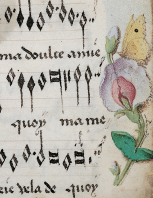 ma doulce amie
quoy ma me
vela de quoy